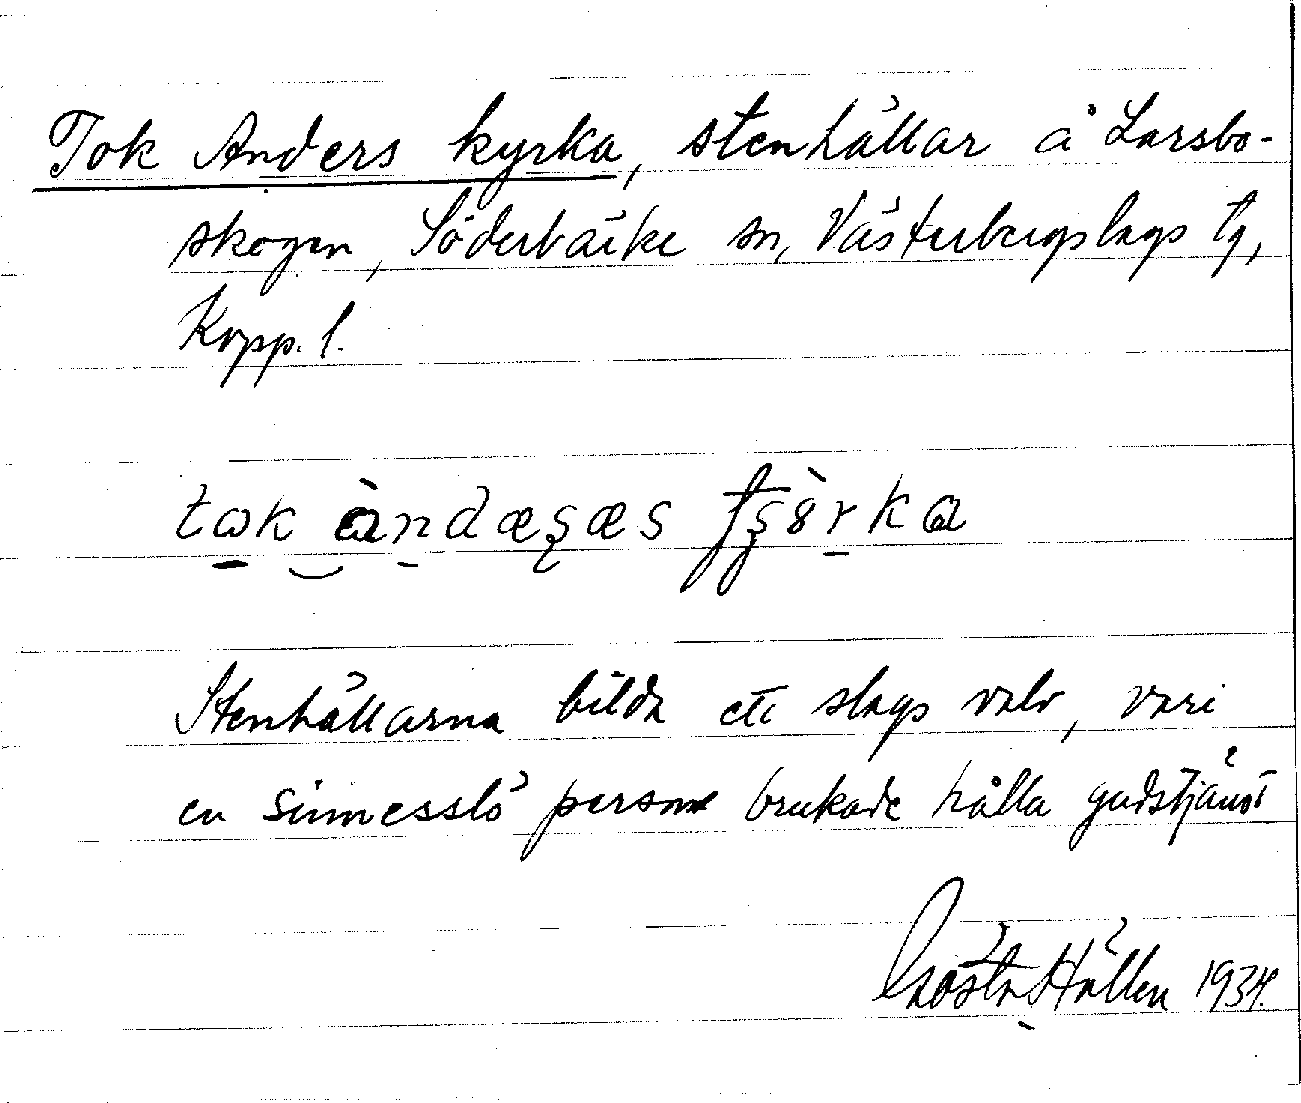 Tok Anders kyrka, stenhällar å Larsbo-
skogen, Söderbärke sn, Västerbergslags tg,
Kopp. l.
tok àndæşæs
Stenhällarna bilda ett slags valv, vari
en sinnesslö person brukade hålla gudstjänst
Gösta Hållen 1934.